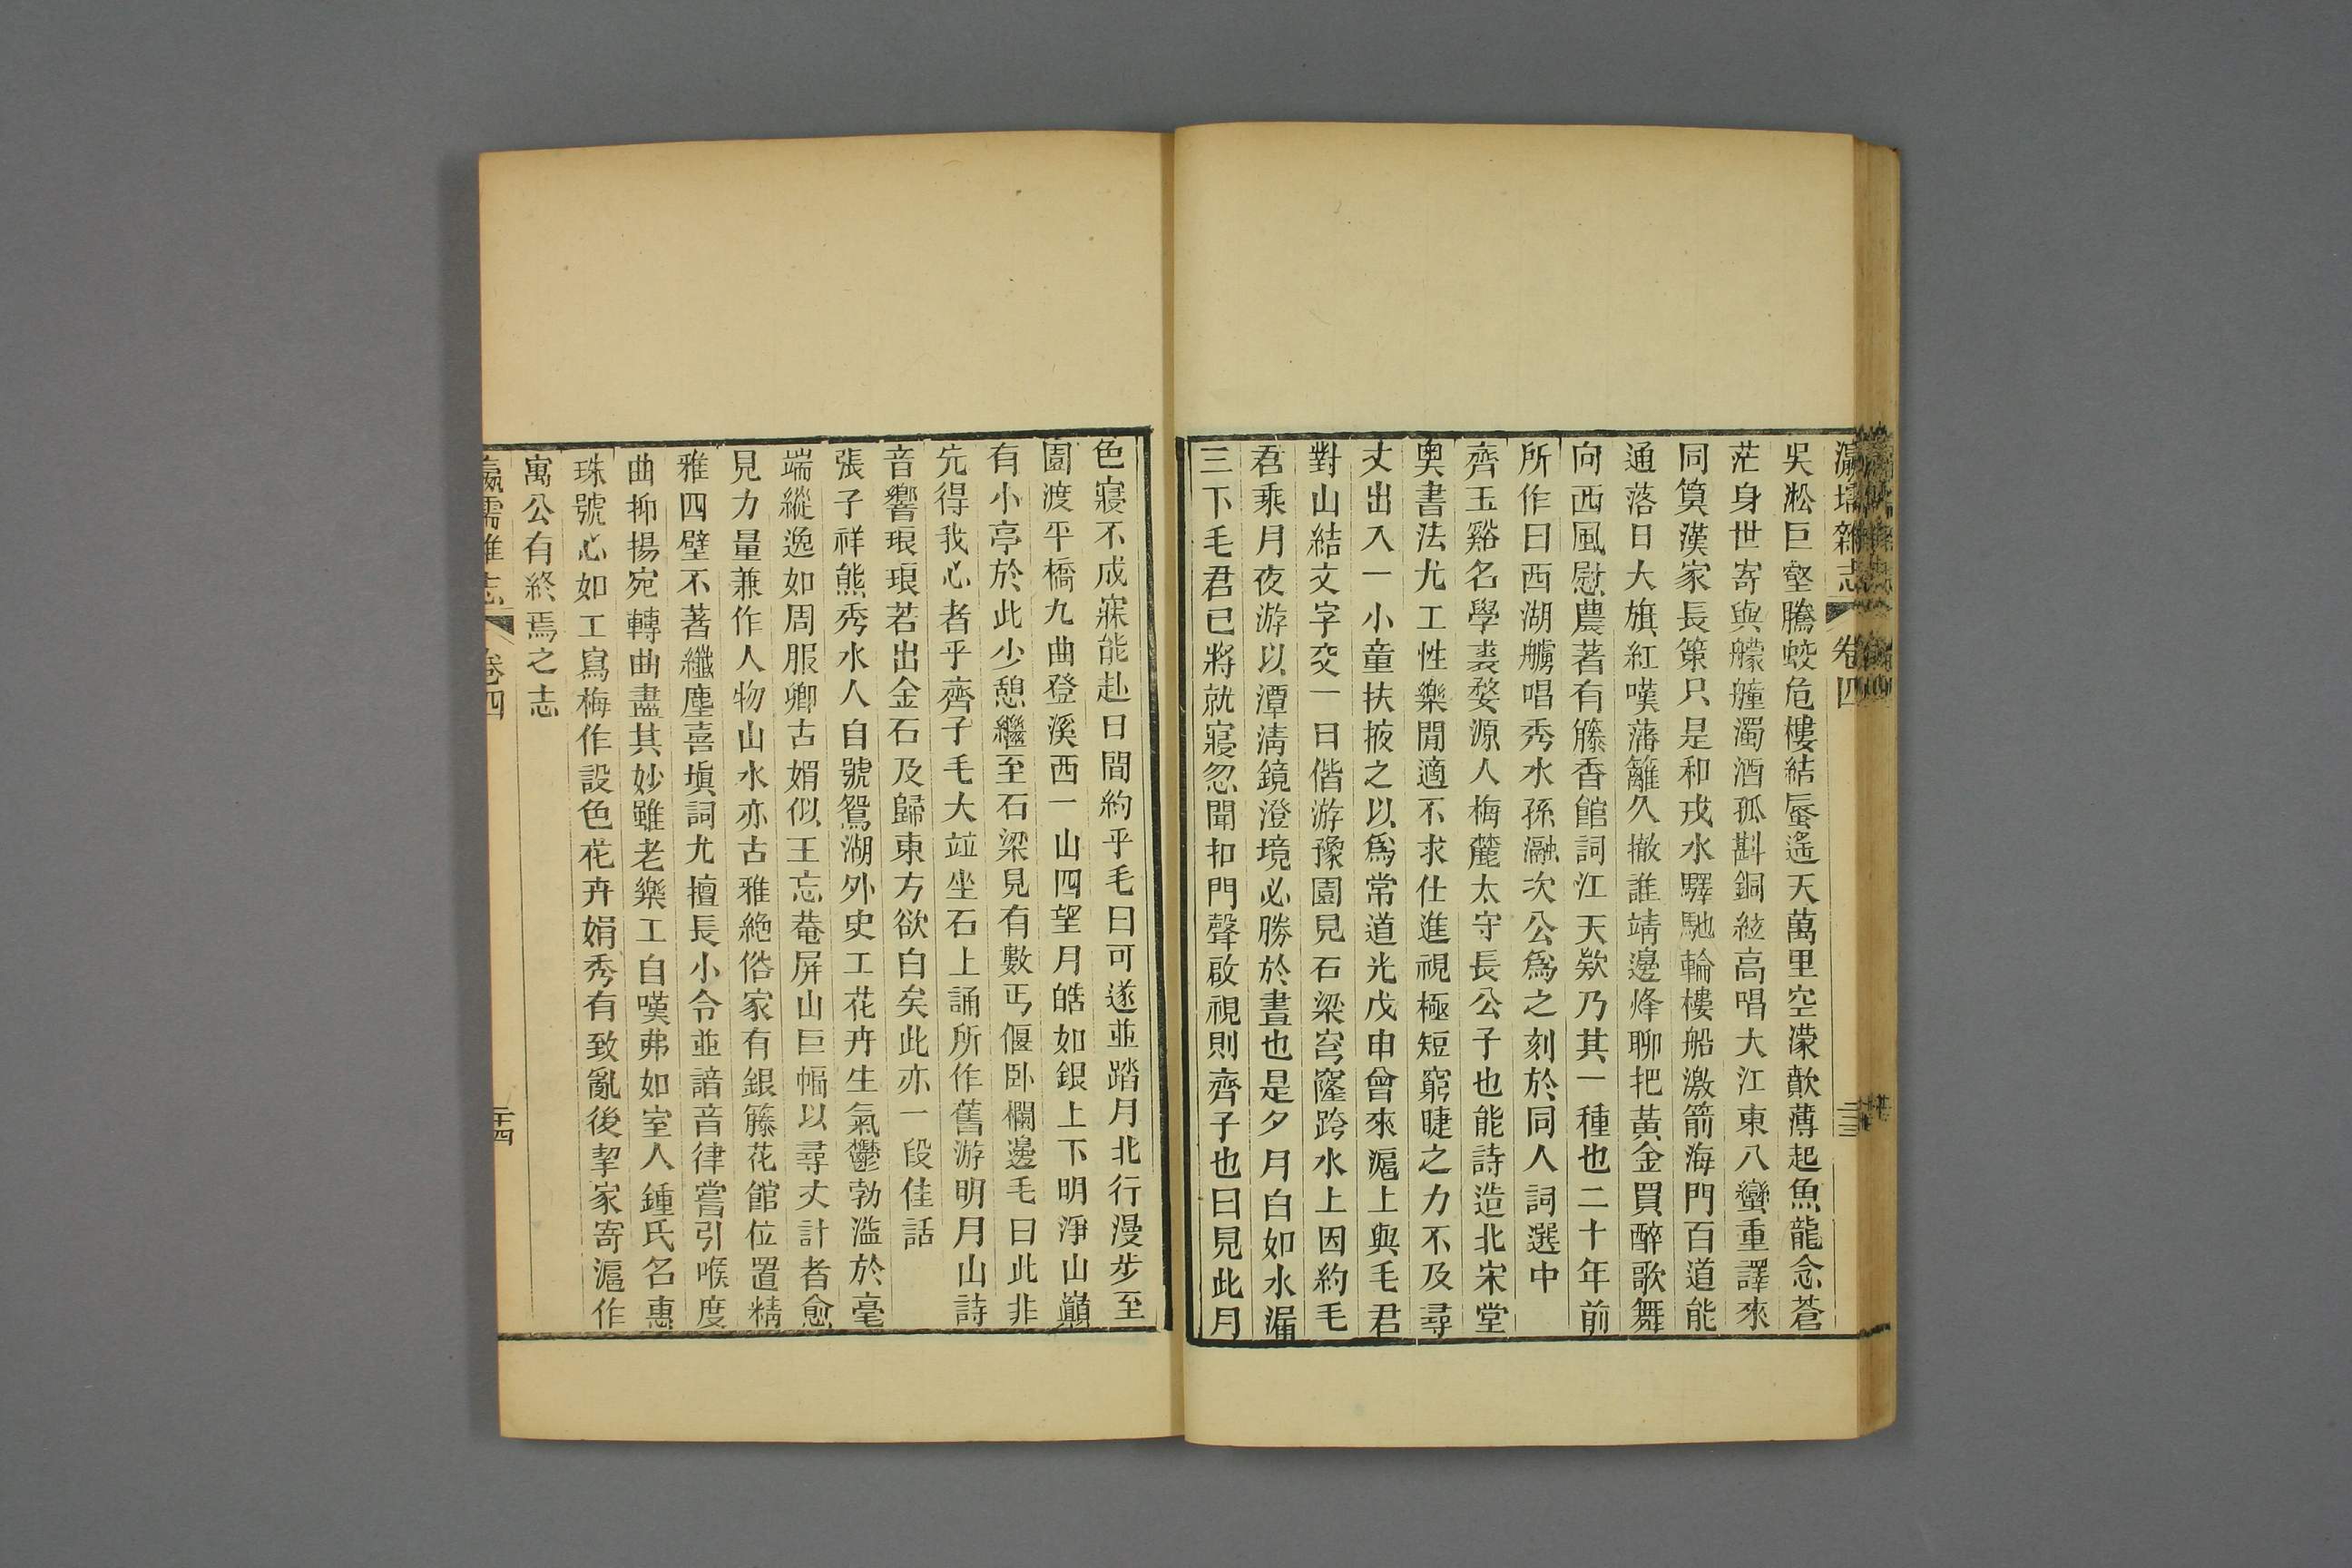 瀛壖雜志 卷四 二十三
吳淞巨壑騰蛟危樓結蜃遙天萬里空濛歕薄起魚龍念蒼
茫身世寄與艨艟濁酒孤斟銅絃高唱大江東八蠻重譯來
同算漢家長策只是和戎水驛馳輪樓船激箭海門百道能
通落日大旗紅嘆藩籬久撤誰靖邊烽聊把黃金買醉歌舞
向西風慰農著有籐香館詞江天欸乃其一種也二十年前
所作曰西湖艣唱秀水孫瀜次公爲之刻於同人詞選中
齊玉谿名學裘婺源人梅麓太守長公子也能詩造北宋堂
奧書法尤工性樂閒適不求仕進視極短窮睫之力不及尋
丈出入一小童扶掖之以爲常道光戊申曾來滬上與毛君
對山結文字交一日偕游豫園見石梁穹窿跨水上因約毛
君乘月夜游以潭淸鏡澄境必勝於晝也是夕月白如水漏
三下毛君已將就寢忽聞扣門聲啟視則齊子也曰見此月
色寢不成寐能赴日間約乎毛曰可遂並踏月北行漫步至
園渡平橋九曲登溪西一山四望月皓如銀上下明淨山巓
有小亭於此少憩繼至石梁見有數丐偃臥欄邊毛曰此非
先得我心者乎齊子毛大竝坐石上誦所作舊游明月山詩
音響琅琅若出金石及歸東方欲白矣此亦一段佳話
張子祥熊秀水人自號鴛湖外史工花卉生氣鬱勃溢於毫
端縱逸如周服卿古媚似王忘菴屏山巨幅以尋丈計者愈
見力量兼作人物山水亦古雅絶俗家有銀籐花館位置精
雅四壁不著纖塵喜塡詞尤擅長小令並諳音律嘗引喉度
曲抑揚宛轉曲盡其妙雖老樂工自嘆弗如室人鍾氏名惠
珠號心如工寫梅作設色花卉娟秀有致亂後挈家寄滬作
寓公有終焉之志
瀛壖雜志 卷四 二十四